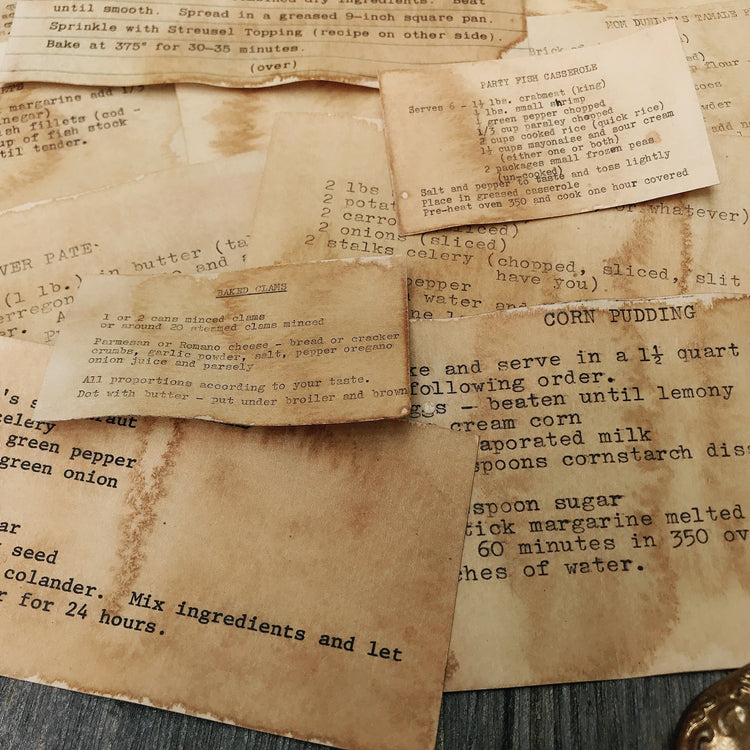 until smooth. Spread in a greased 9-inch square pan.
Sprinkle with Streusel Topping (recipe on other side).
Bake at 375° for 30-35 minutes.
(over)
margarine add 1/3
negar)
fish fillets (cod -
up of fish stock
til tender.
MOM DUNDAS'S TAMALE
Brick of
flour
toes
wder
add
PARTY FISH CASSEROLE
Serves 6 - 1½ lbs. crabmeat (king)
1 lbs. small shrimp
1 green pepper chopped
1/3 cup parsley chopped
2 cups cooked rice (quick rice)
1½ cups mayonaise and sour cream
(either one or both)
2 packages small frozen peas
(un-cooked)
Salt and pepper to taste and toss lightly
Place in greased casserole
Pre-heat oven 350 and cook one hour covered
2 lbs
2 potat
2 carro
2 onions (sliced)
2 stalks celery (chopped, sliced, slit
or whatever)
have you)
pepper
water and
VER PATE
(1 lb.) in butter
and
erregon
BAKED CLAMS
1 or 2 cans minced clams
or around 20 steamed clams minced
Parmesan or Romano cheese - bread or cracker
crumbs, garlic powder, salt, pepper oregano
onion juice and parsely
All proportions acoording to your taste.
Dot with butter - put under broiler and brown
CORN PUDDING
ke and serve in a 1½ quart
following order.
ggs - beaten until lemony
cream corn
aporated milk
spoons cornstarch dis
spoon sugar
tick margarine melted
60 minutes in 350 ov
ches of water.
's s
raut
celery
green pepper
green onion
ar
seed
colander. Mix ingredients and let
r for 24 hours.